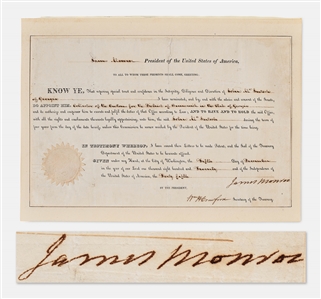 James Monroe President of the United States of America,
TO ALL TO WHOM THESE PRESENTS SHALL COME, GREETING:
KNOW YE, That reposing special trust and confidence in the Integrity, Diligence and Discretion of
of Georgia I have nominated, and by and with the advice and consent of the Senate,
DO APPOINT HIM, Collector of the Customs for the District of in the State of Georgia
and do authorize and empower him to execute and fulfil the duties of that Office according to Law; AND TO HAVE AND TO HOLD the said Office,
with all the rights and emoluments thereunto legally appertaining unto him, the said during the term of
four years from the day of the date hereof, unless this Commission be sooner revoked by the President of the United States for the time being.
IN TESTIMONY WHEREOF, I have caused these Letters to be made Patent, and the Seal of the Treasury
Department of the United States to be hereunto affixed.
GIVEN under my Hand, at the City of Washington, the Fifth Day of
in the year of our Lord one thousand eight hundred and Twenty and of the Independence of
the United States of America, the Forty fifth.
BY THE PRESIDENT,
James Monroe
Wm H Crawford Secretary of the Treasury.
James Monroe